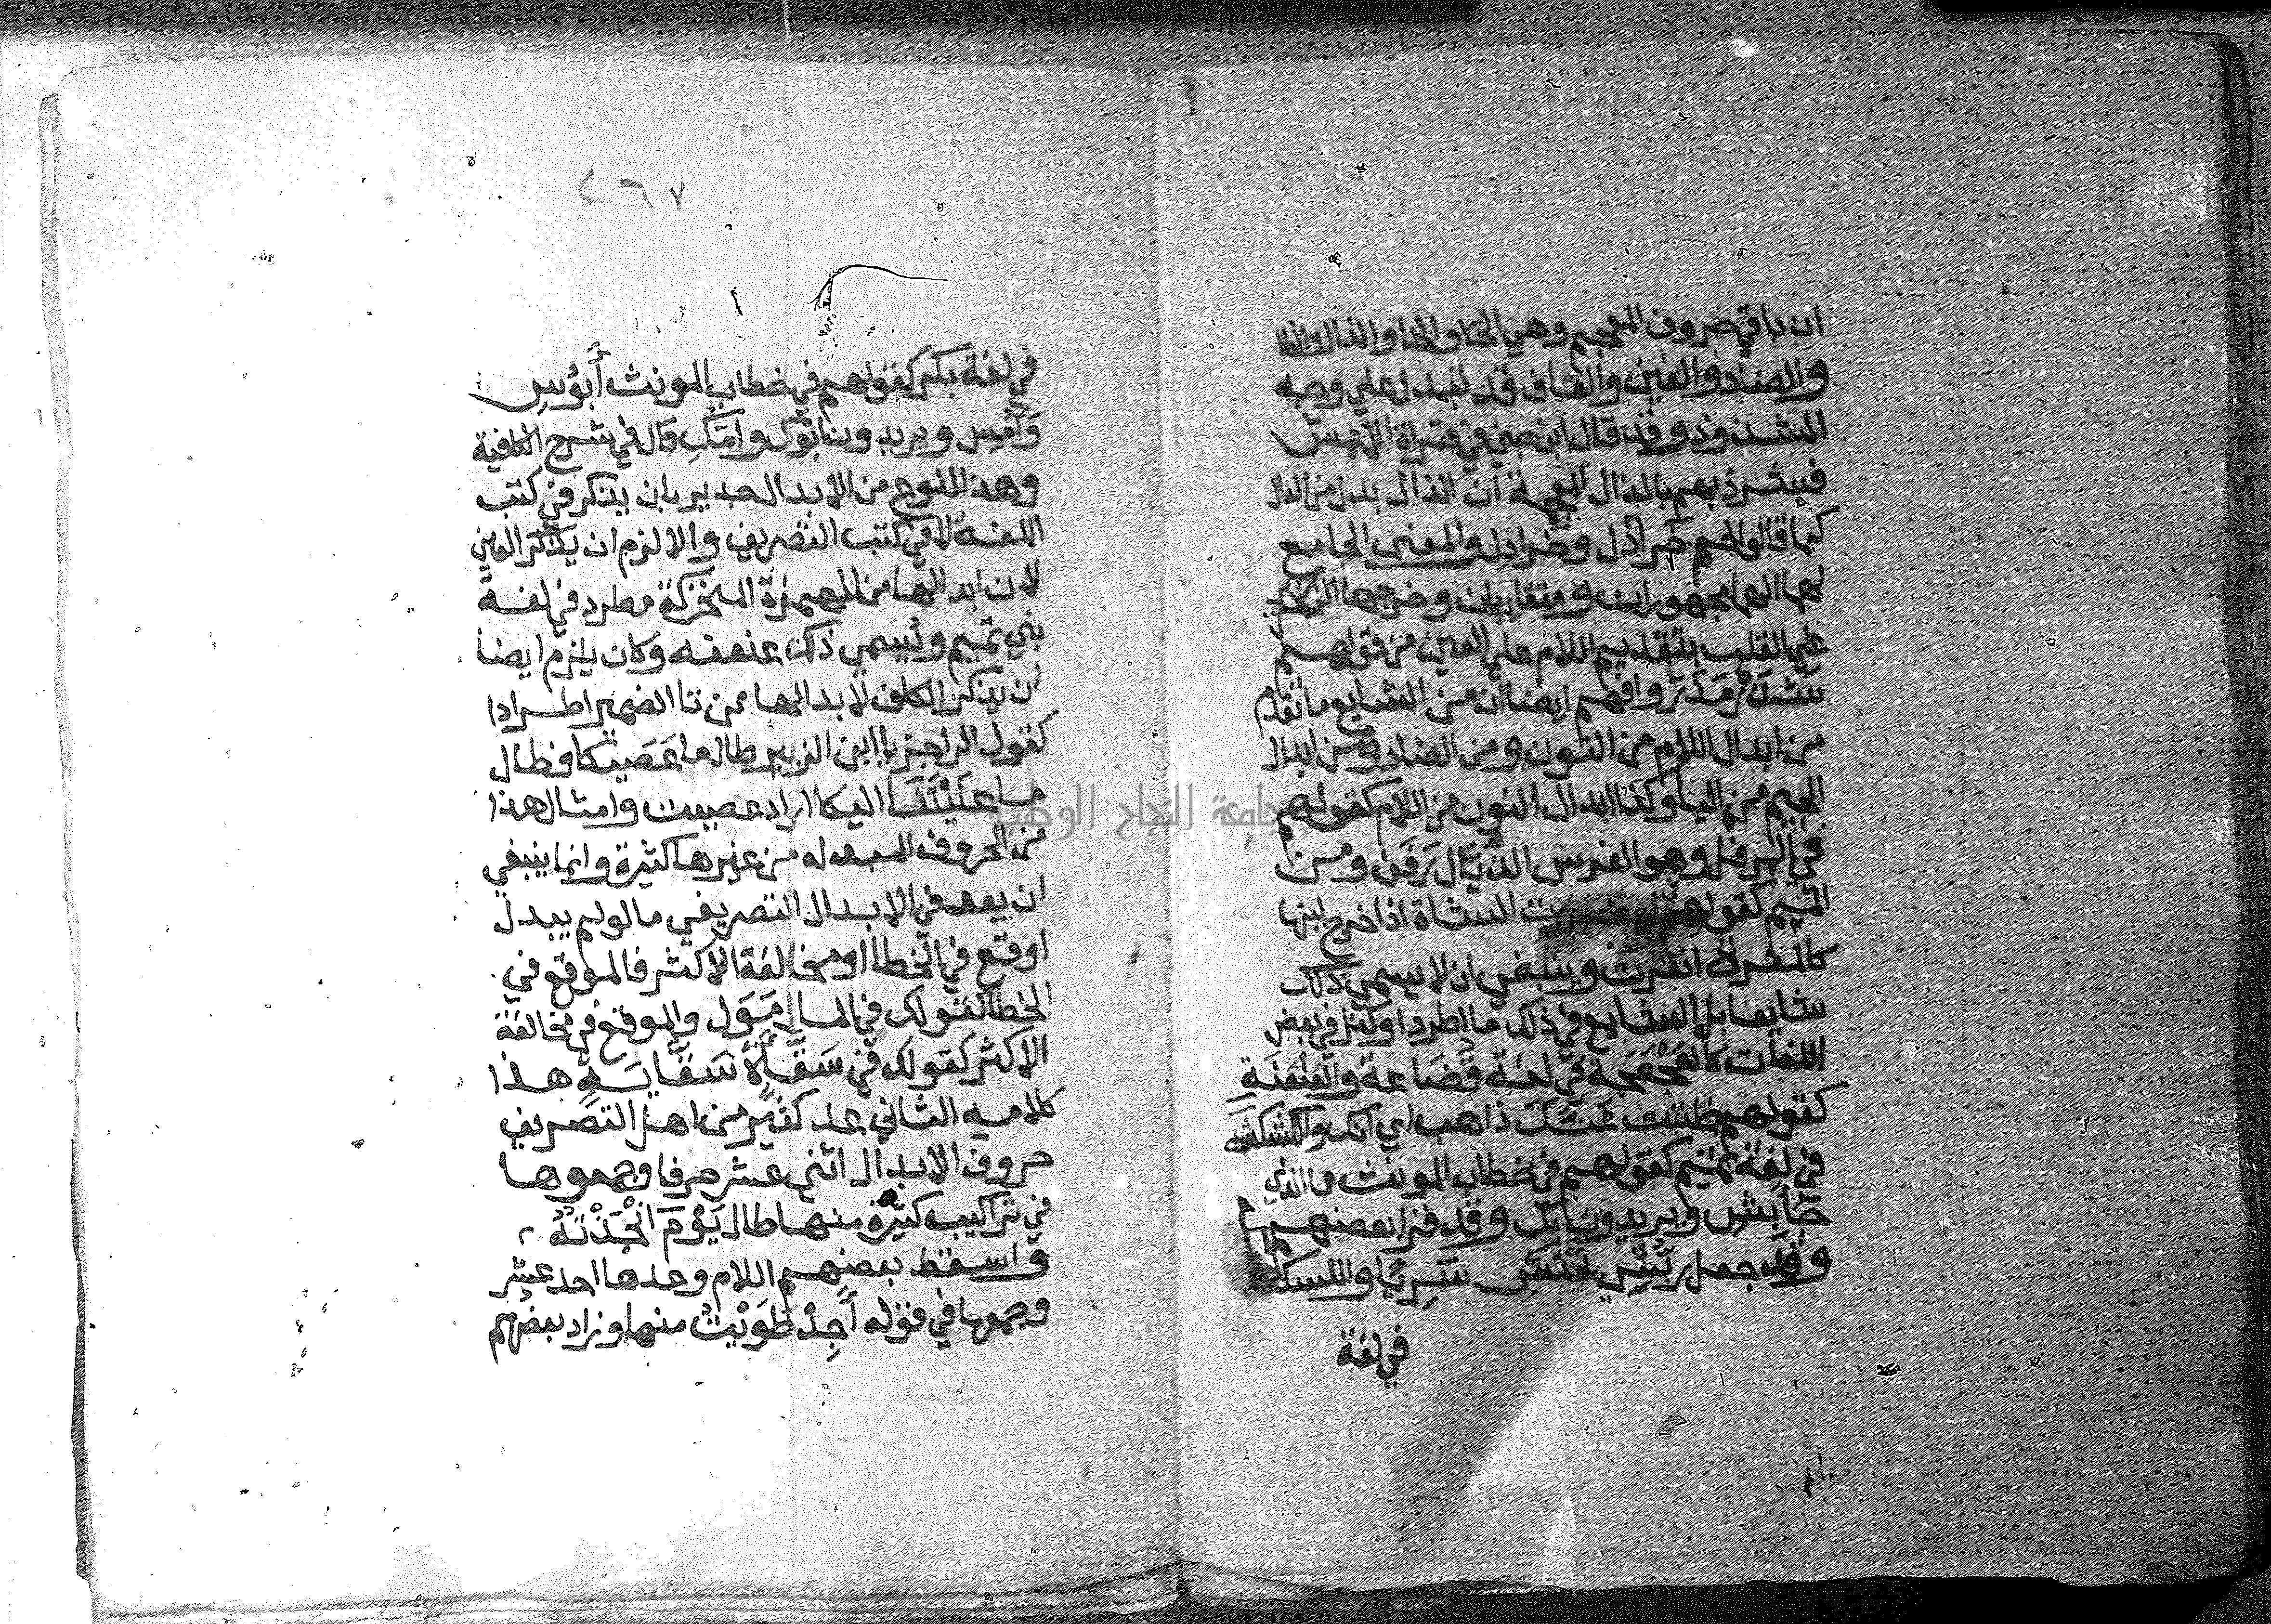 ان باقي حروف المعجم وهي الحا والخا والذال والظا
والضاد والغين والقاف قد تبدل علي وجه
الشذوذ وقد قال ابن جني في قراة الاعمش
فشرذ بهم بالذال المعجمة ان الذال بدل من الدال
كما قالوا لحم خراذل وخرادل والمعني الجامع
لهما انهما مجهوران ومتقاربان وخرجها الزمخشري
علي القلب بتقديم اللام علي العين من قولهم
شَذَرَ مَذَرَ وافهم ايضا ان من الشايع ما تقدم
من ابدال اللام من النون ومن الضاد ومن ابدال
الجيم من اليا وكذا ابدال النون من اللام كقولهم
في الرفل وهو الفرس الذَّيَّال رَفَن ومن
الميم كقولهم امغرت الشاة اذا خرج لبنها
كالمغرة انغرت وينبغي ان لا يسمي ذلك
شايعا بل الشايع في ذلك ما اطرد او كثر في بعض
اللغات كالعَجْعَجَة في لغة قُضَاعة والعَنْعَنَة
كقولهم ظننت عَنَّكَ ذاهب اي انك والكشكشة
في لغة تميم كقولهم في خطاب المونث ما الذي
جَاَبِشِ ويريدون بك وقد قرا بعضهم
وقد جعل رَبُّشِ تَحْتَشِ سَرِيًا والكسكسة
في لغة
٤٦٧
في لغة بكر كقولهم في خطاب المونث أَبُوْسِ
وَأُمُّسِ ويريدون ابُوْكِ وامُّكِ قال في شرح الكافية
وهذا النوع من الابدال جدير بان يذكر في كتب
اللغة لا في كتب التصريف والا لزم ان يذكر العين
لان ابدالها من الهمزة المتحركة مطرد في لغة
بني تميم ويسمي ذلك عنعنه وكان يلزم ايضا
ان يذكر الكاف لابدالها من تا الضمير اطرادا
كقول الراجز يا ابن الزبير طال ما عَصَيكا وطال
ما عَنَّيْتَنَا اليكا اراد عصيت وامثال هذا
من الحروف المبدله من غيرها كثيرة وانما ينبغي
ان يعد في الابدال التصريفي ما لو لم يبدل
اوقع في الخطا او مخالفة الاكثر فالموقع في
الخطا كقولك في مال مَوَل والموقع في مخالفة
الاكثر كقولك في سَقَّاَءَةٌ سَقَّايَةٍ هذا
كلامه الثاني عد كثير من اهل التصريف
حروف الابدال اثني عشر حرفا وجمعوها
في تراكيب كثيرة منها طال يَوْمَ انْجَدْتُهُ
واسقط بعضهم اللام وعدها احد عشر
وجمعها في قوله أَجِدْ طَوَيْتُ منها وزاد بعضهم
جامعة النجاح الوطنية